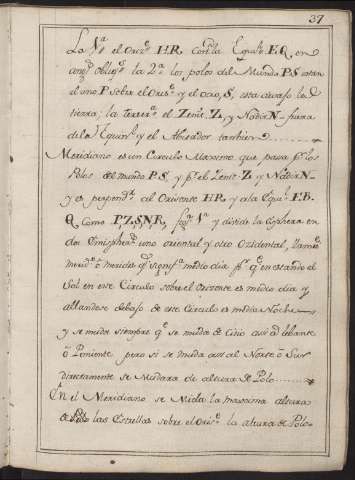 37
La 1ª el Orizᵉ H.R. corta la Equaᵗ E.Q. en
angˢ obliqˢ la 2ª los polos del Mundo P.S. estan
el uno P. sobre el Orisᵗᵉ y el otro, S, esta abaxo la
terzera el Zenit. Z, y Nadir N fuera
del Equinˡ y el Aluador tambien
Meridiano es un Circulo Maximo que pasa pʳ los
Polos del mundo P.S. y pʳ el Zenit Z y Nadir N
y es perpendʳ al Orizonte H.R. y a la Equiˡ E.
Q. Como P,Z,S,N,R, figª 1ª y divide la Esphera en
dos Emispheros uno oriental y otro Ozidental, llamase
meridⁿᵒ ô meridies qᵉ signifᶜª medio dia pʳ qᵉ en estando el
Sol en este Circulo sobre el Orizonte es medio dia y
allandose debajo de este Circulo es media Noche
y se mide siempre qᵉ se muda de Citio asi al lebante
ô Poniente pero si se muda asi al Norte ô Sur
directamente se mudara de altura de Polo
En el Meridiano se Mide la maxima altura
de las Estrellas sobre el Orisᵗᵉ la altura de Polo